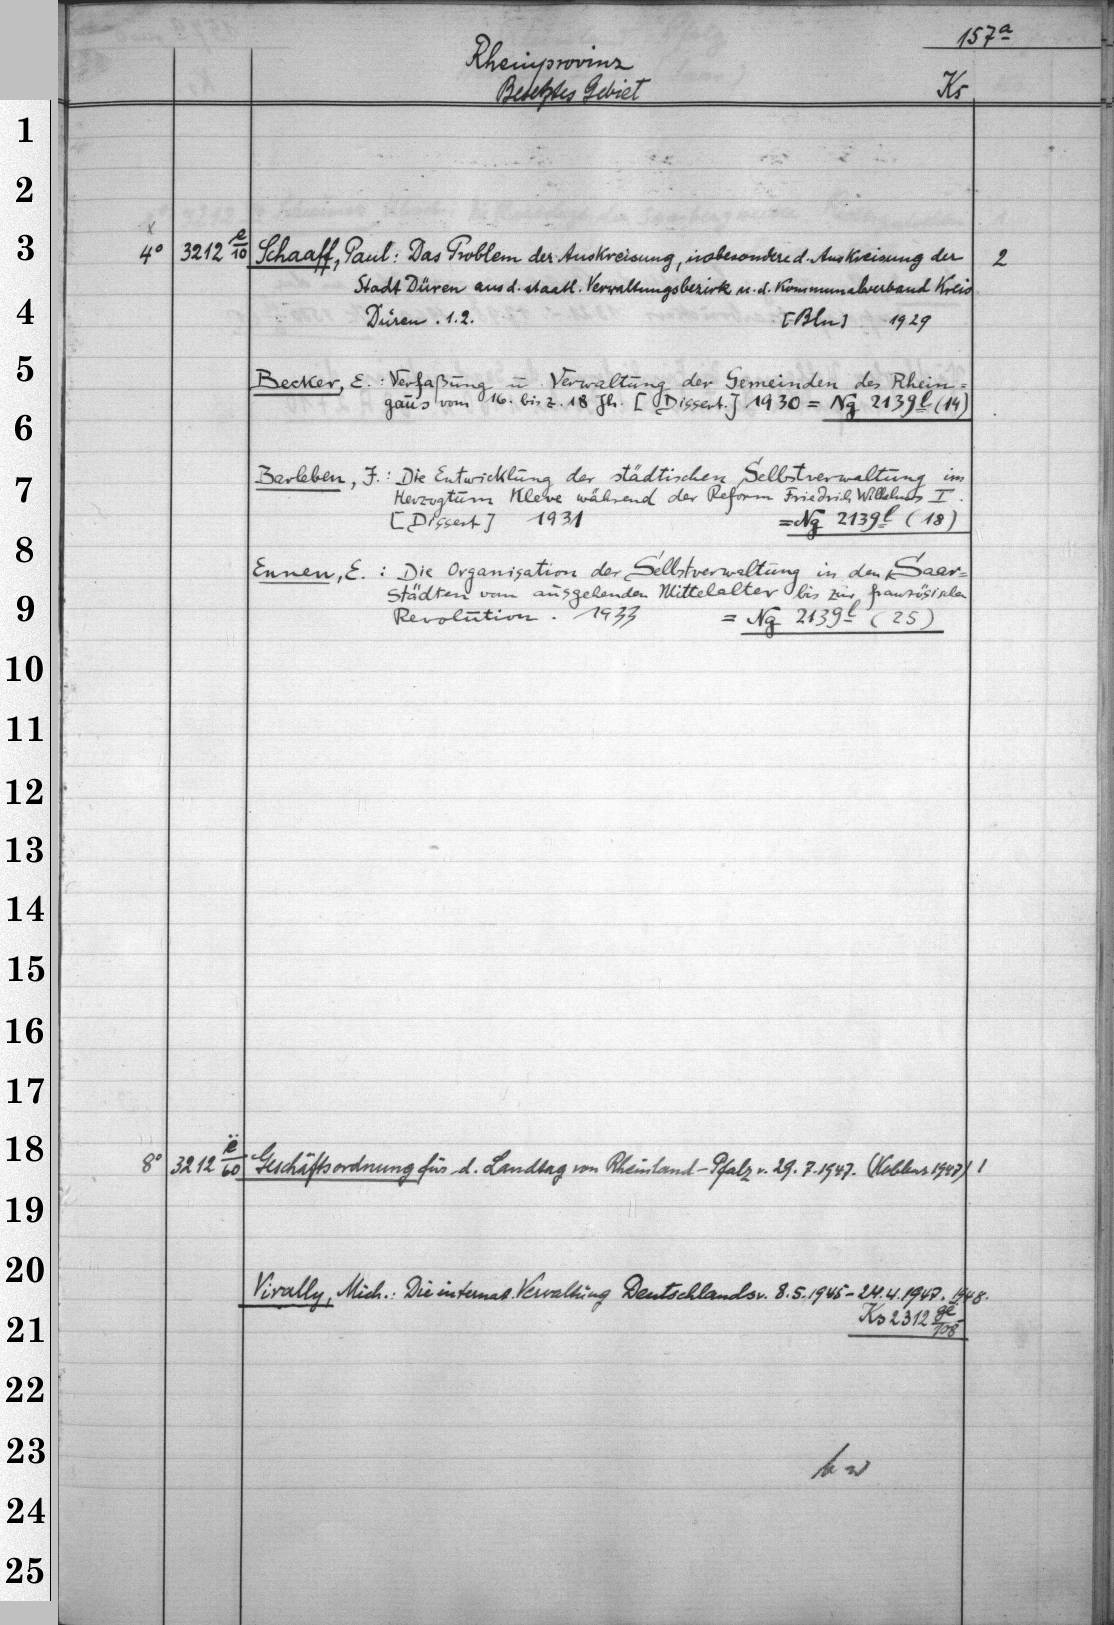 157a
Rheinprovinz
Besetztes Gebiet Ks
1
2
3
4° 3212 e/10 Schaaff, Paul: Das Problem der Auskreisung, insbesondere d. Auskreisung der 2
Stadt Düren aus d. staatl. Verwaltungsbezirk u. d. Kommunalverband Kreis
4
Düren. 1.2. [Bln] 1929
5
Becker, E.: Verfaßung u. Verwaltung der Gemeinden des Rhein=
gaus vom 16. bis z. 18 Jh. [Dissert.] 1930 = Ng 2139l (14)
6
7
Barleben, J.: Die Entwicklung der städtischen Selbstverwaltung im
Herzogtum Kleve während der Reform Friedrich Wilhelms I.
[Dissert] 1931 = Ng 2139l (18)
8
Ennen, E.: Die Organisation der Selbstverwaltung in den Saar=
Städten vom ausgehenden Mittelalter bis zur französischen
9
Revolution. 1933 = Ng 2139l (25)
10
11
12
13
14
15
16
17
18
8° 3212 ë/60 Geschäftsordnung für d. Landtag von Rheinland-Pfalz v. 29.7.1947. (Koblenz 1947) 1
19
20
Virally, Mich.: Die internat. Verwaltung Deutschlands v. 8.5.1945-24.4.1947. 1948.
21
Ks 2312 ge/108
22
23
24
25